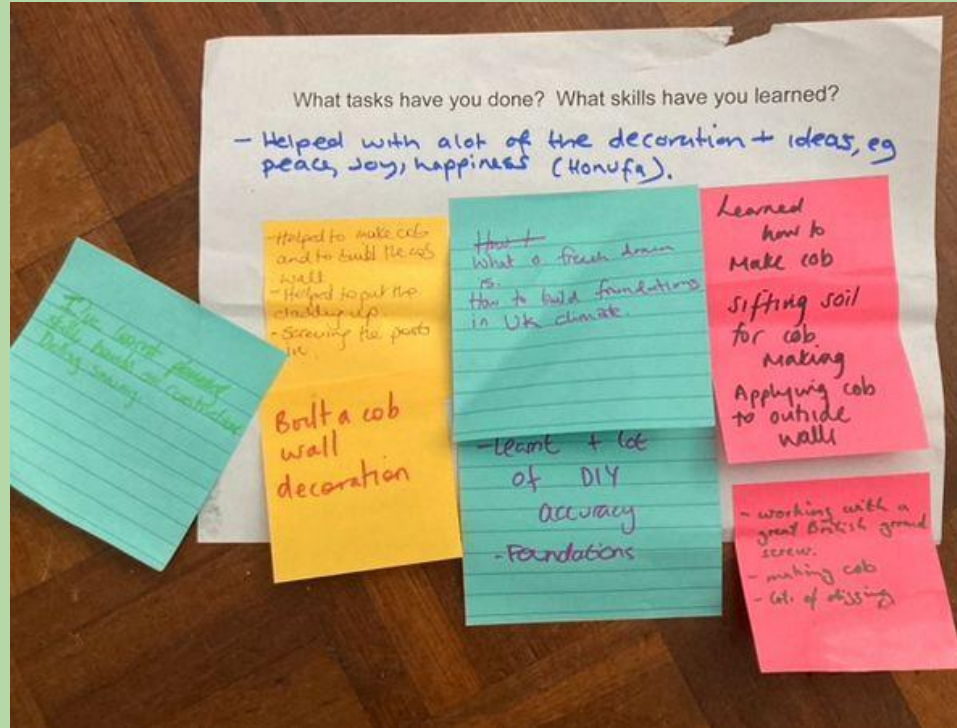 What tasks have you done? What skills have you learned?
- Helped with alot of the decoration + ideas, eg
peace, Joy, happiness (Honufa).
I've learnt planning
skills, hands on construction
sawing
- Helped to make cob
and to build the cob
wall
- Helped to put the
cladding up.
- Screwing the posts
in.
Built a cob
wall
decoration
How t
What a french drain
is.
How to build foundations
in UK climate.
- Learnt + lot
of DIY
accuracy
- Foundations
Learned
how to
Make cob
Sifting soil
for cob
making
Applying cob
to outside
walls
- working with a
great British ground
screw.
- making cob
- lots of digging